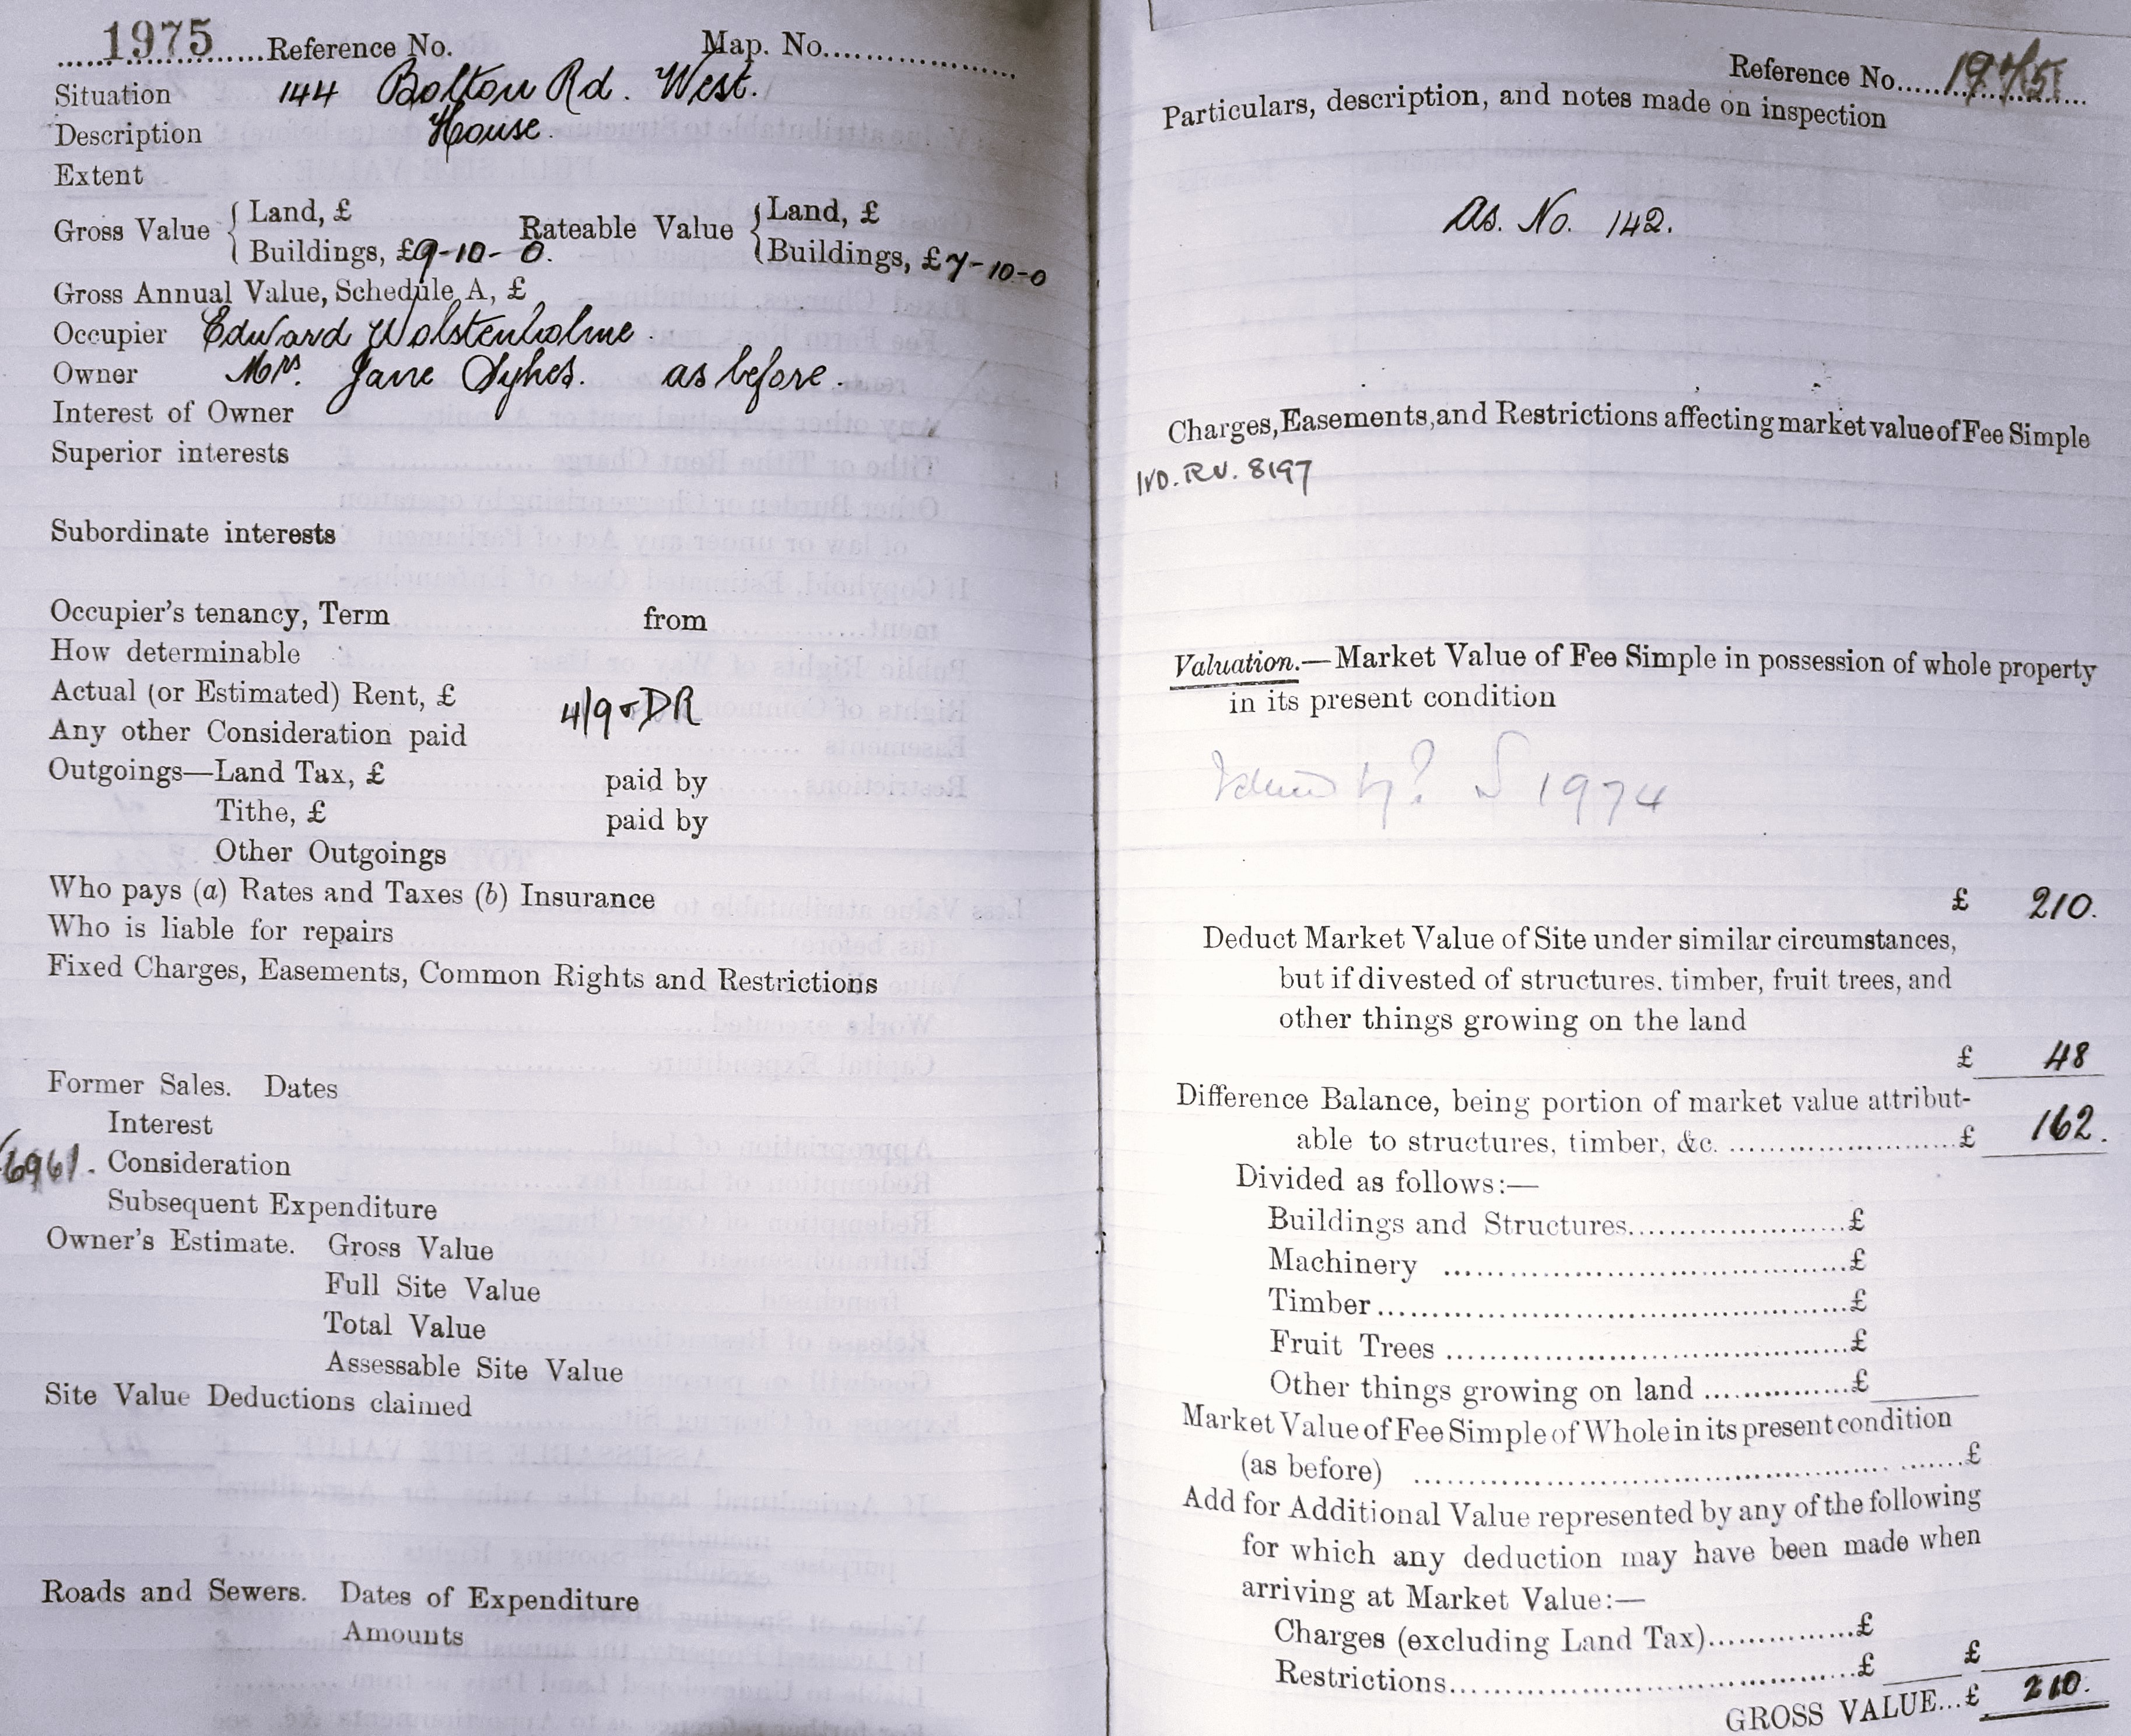 1975 Reference No. Map. No.
Situation 144 Bolton Rd. West.
Description House.
Extent
Gross Value { Land, £ Rateable Value { Land, £
Buildings, £9-10-0. Buildings, £7-10-0
Gross Annual Value, Schedule A, £
Occupier Edward Wolstenholme.
Owner Mrs. Jane Sykes. as before.
Interest of Owner
Superior interests
Subordinate interests
Occupier's tenancy, Term from
How determinable
Actual (or Estimated) Rent, £ 4/9 DR
Any other Consideration paid
Outgoings—Land Tax, £ paid by
Tithe, £ paid by
Other Outgoings
Who pays (a) Rates and Taxes (b) Insurance
Who is liable for repairs
Fixed Charges, Easements, Common Rights and Restrictions
Former Sales. Dates
Interest
6961. Consideration
Subsequent Expenditure
Owner's Estimate. Gross Value
Full Site Value
Total Value
Assessable Site Value
Site Value Deductions claimed
Roads and Sewers. Dates of Expenditure
Amounts
Reference No. 1975
Particulars, description, and notes made on inspection
As. No. 142.
Charges, Easements, and Restrictions affecting market value of Fee Simple
IVD. RV. 8197
Valuation.—Market Value of Fee Simple in possession of whole property
in its present condition
1974
£ 210.
Deduct Market Value of Site under similar circumstances,
but if divested of structures. timber, fruit trees, and
other things growing on the land
£ 48
Difference Balance, being portion of market value attribut-
able to structures, timber, &c. £ 162.
Divided as follows:—
Buildings and Structures £
Machinery £
Timber £
Fruit Trees £
Other things growing on land £
Market Value of Fee Simple of Whole in its present condition
(as before) £
Add for Additional Value represented by any of the following
for which any deduction may have been made when
arriving at Market Value:—
Charges (excluding Land Tax) £
Restrictions £ £
GROSS VALUE...£ 210.